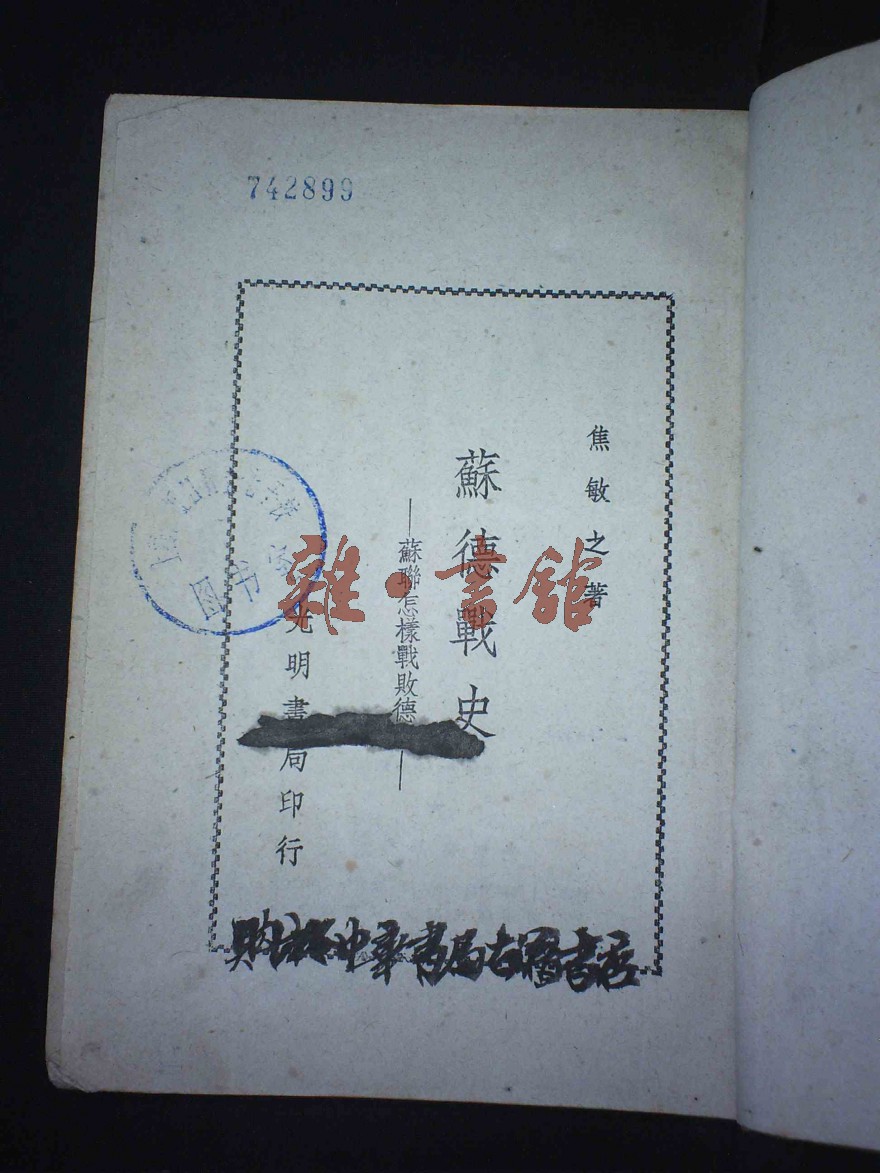 742899
焦敏之著
蘇德戰史
——蘇聯怎樣戰敗德——
光明書局印行
图书
雜·書館
購於中華書局古舊書店